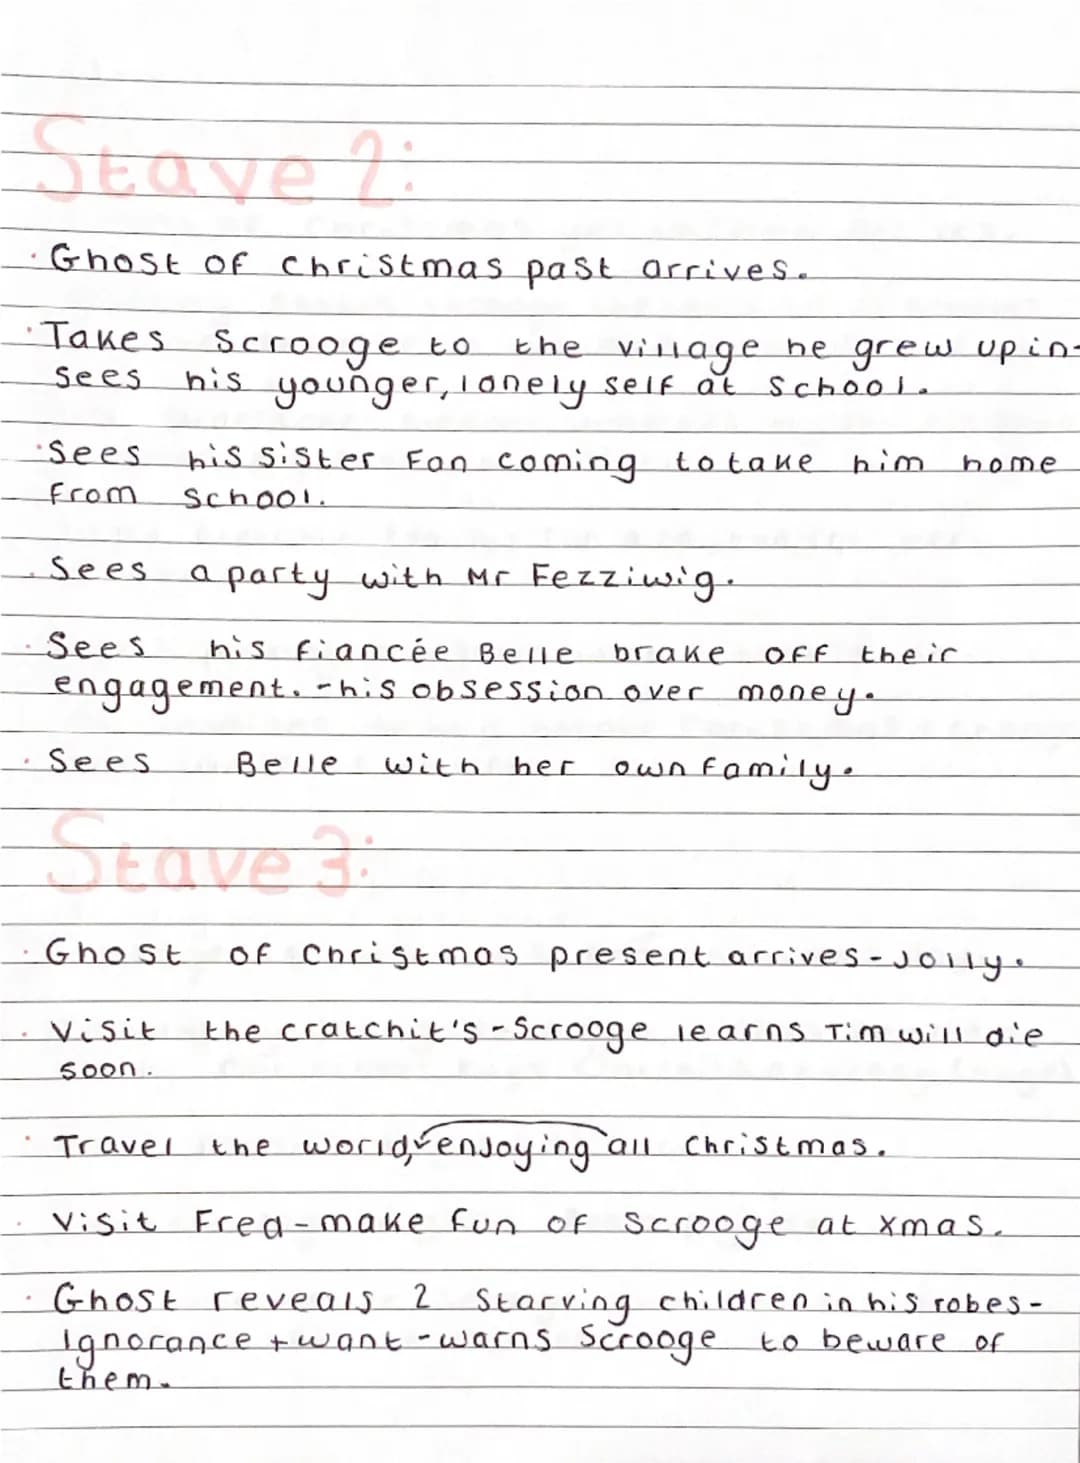 Stave 2:
· Ghost of christmas past arrives.
· Takes Scrooge to the village he grew up in-
sees his younger, lonely self at school.
· Sees his sister Fan coming to take him home
from school.
· Sees a party with Mr Fezziwig.
· Sees his fiancée Belle brake off their
engagement. - his obsession over money.
· Sees Belle with her own family.
Stave 3:
· Ghost of Christmas present arrives - Jolly.
· Visit the cratchit's - Scrooge learns Tim will die
soon.
· Travel the world, enjoying all Christmas.
· Visit Fred - make fun of Scrooge at xmas.
· Ghost reveals 2 starving children in his robes -
Ignorance + want - warns Scrooge to beware of
them.